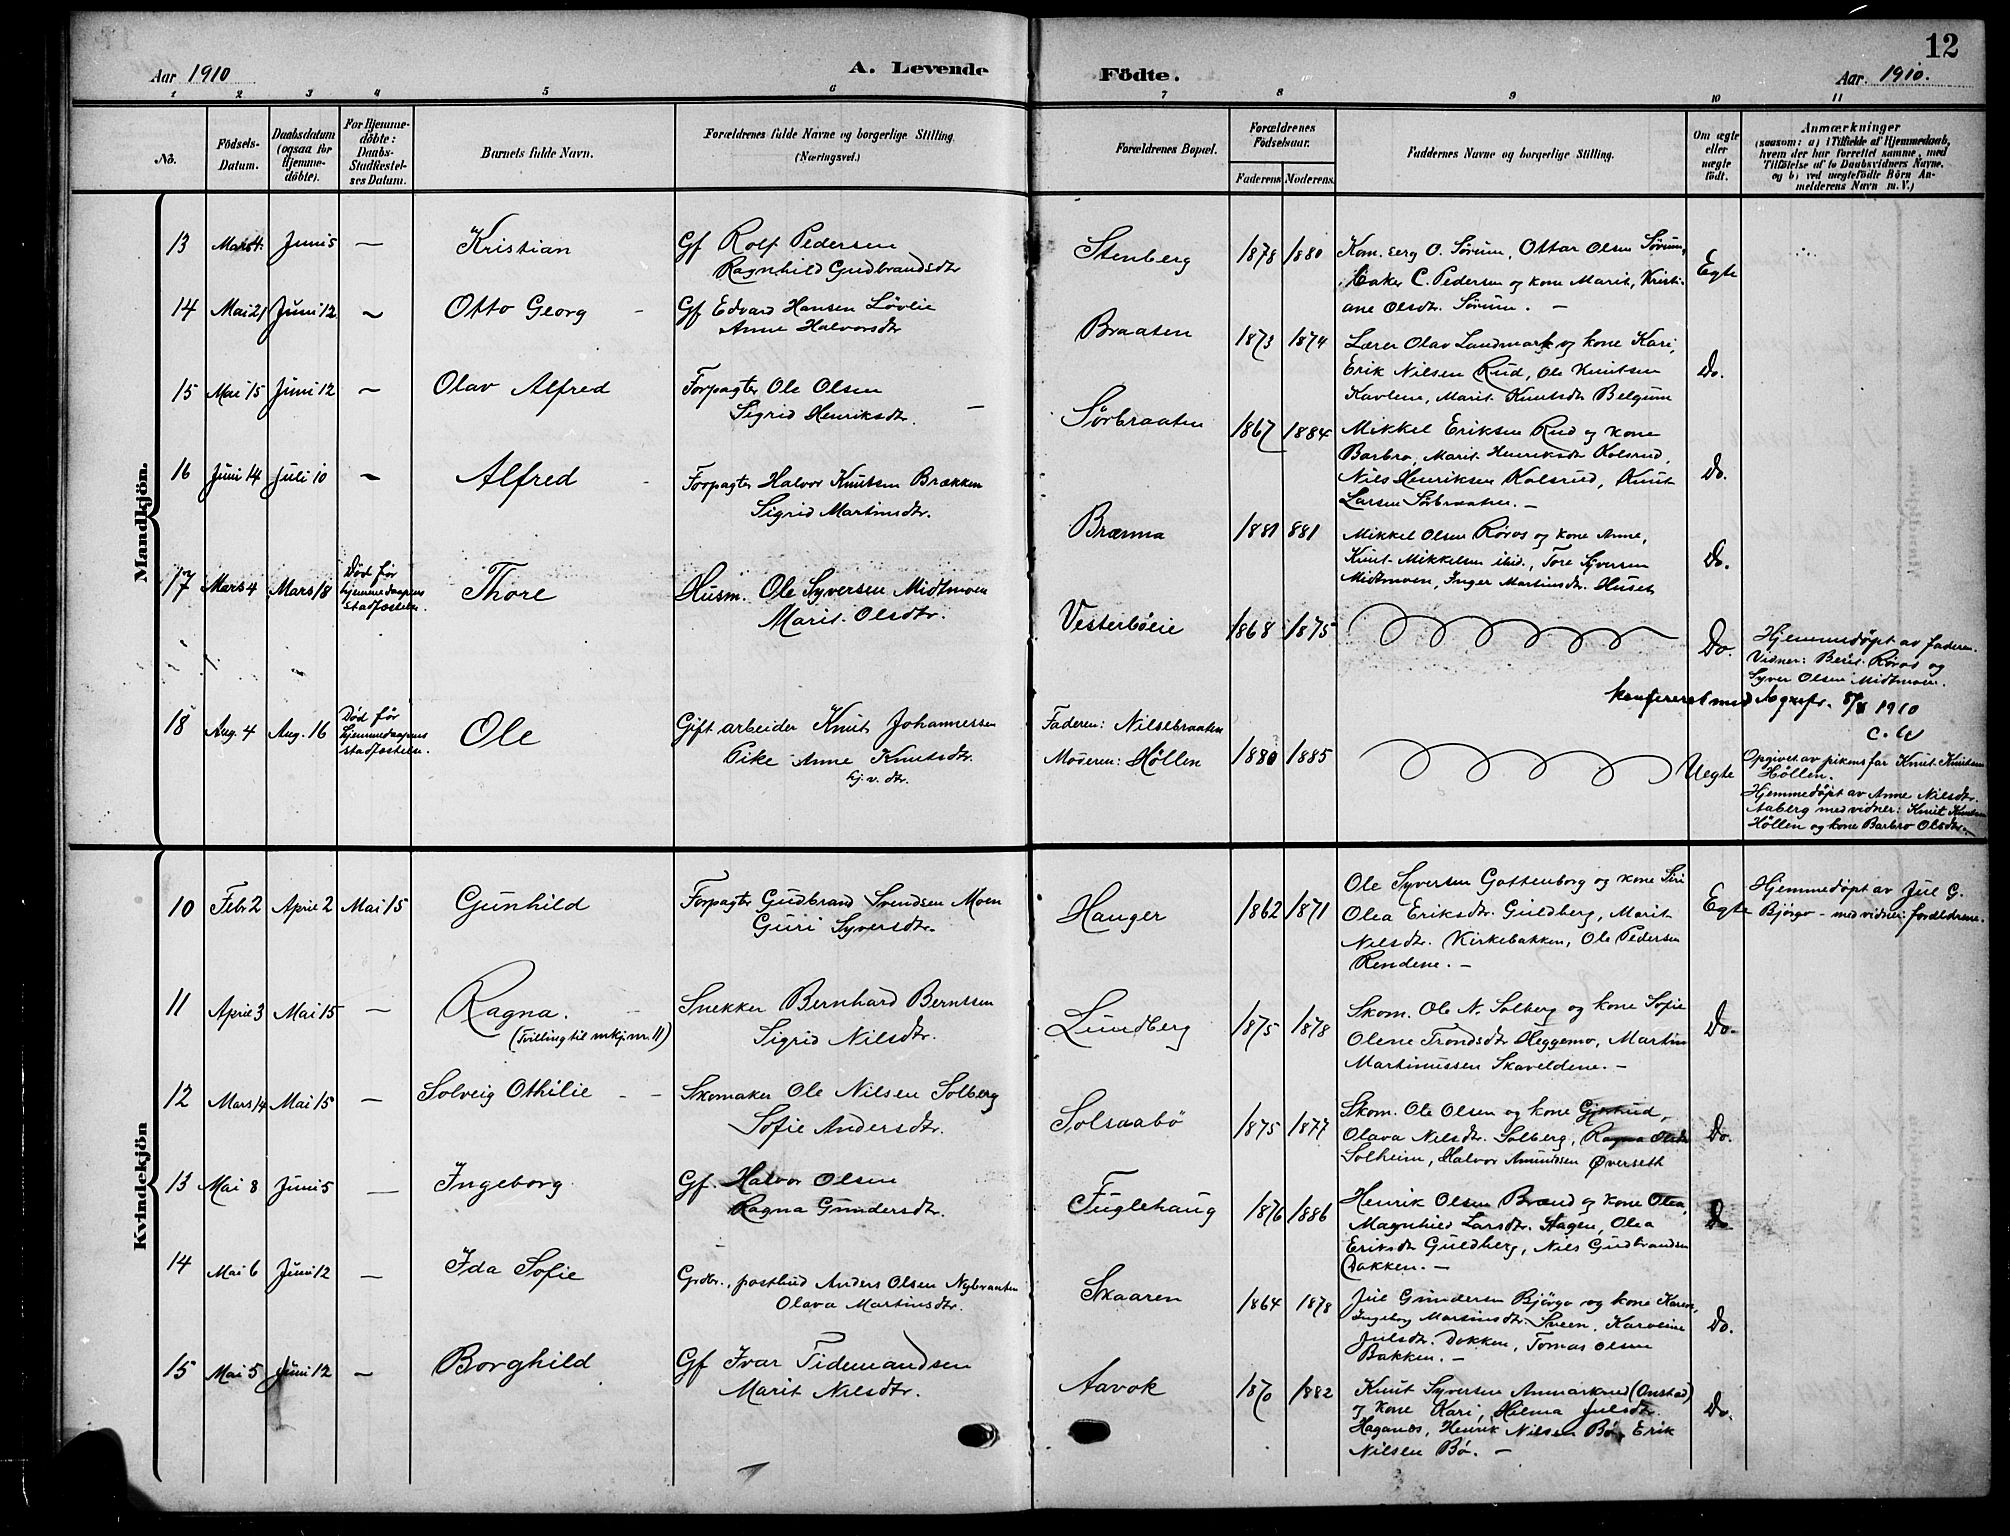 12
Aar 1910
A. Levende Födte.
Aar 1910.
1 2 3 4 5 6 7 8 9 10 11
No.
Födsels-
Datum.
Daabsdatum
(ogsaa for
Hjemme-
döbte).
For Hjemme-
döbte:
Daabs-
Stadfestel-
ses Datum.
Barnets fulde Navn.
Forældrenes fulde Navne og borgerlige Stilling.
(Næringsvei.)
Forældrenes Bopæl.
Forældrenes
Födselsaar.
Faderens Moderens.
Faddernes Navne og borgerlige Stilling.
Om ægte
eller
uægte
födt.
Anmærkninger
(saasom: a) i Tilfælde af Hjemmedaab,
hvem der har forrettet samme, med
Tilföielse af to Daabsvidners Navne,
og b) ved uægtefödte Börn An-
melderens Navn m. V.)
Mandkjön.
13 Mars 4. Juni 5 — Kristian
Gf Rolf Pedersen
Ragnhild Gudbrandsdtr
Stenberg 1878 1880
Kom. O. Sørum, Ottar Olsen Sørum,
C. Pedersen og kone Marit, Kristi-
ane Olsdtr. Sørum. —
Egte
14 Mai 21 Juni 12 ~ Otto Georg
Gf Edvard Hansen Løvlie
Anne Halvorsdtr
Braaten 1873 1874
Lærer Olav Landmark og kone Kari,
Erik Nilsen Rud, Ole Knutsen
Kavlene, Marit Knutsdtr Belgum
Do.
15 Mai 15 Juni 12 ~ Olav Alfred
Forpagter Ole Olsen
Sigrid Henriksdtr.
Sørbraaten 1867 1884
Mikkel Eriksen Rud og kone
Barbro, Marit Henriksdtr Kolsrud,
Nils Henriksen Kolsrud, Knut
Larsen Sørbraaten. —
Do.
16 Juni 14 Juli 10 ~ Alfred
Forpagter Halvor Knutsen Brækken
Sigrid Martinsdtr.
Brænna 1881 881
Mikkel Olsen Røros og kone Anne,
Knut Mikkelsen ibid., Tore Syversen
Midtmoen, Inger Martinsdtr. Huset
Do.
17 Mars 4 Mars 18
Død før
hjemmedaapens
stadfæstelse.
Thore
Husm. Ole Syversen Midtmoen
Marit Olsdtr.
Vesterbøeie 1868 1875
Do.
Hjemmedøpt av faderen.
Vidner: Berit Røros og
Syver Olsen Midtmoen.
konfereret med 1910
C. W
18 Aug. 4 Aug. 16
Død før
hjemmedaapens
stadfæstelse.
Ole
Gift arbeider Knut Johannessen
Pike Anne Knutsdtr.
Faderen: Nilsebraaten
Moderen: Høllen 1880 1885
Uegte
Opgivet av pikens far Knut Knutsen
Høllen.
Hjemmedøpt av Anne Nilsdtr.
Aaberg med vidner: Knut Knutsen
Høllen og kone Barbro Olsdtr.
Kvindekjön
10 Febr 2 April 2 Mai 15 Gunhild
Forpagter Gudbrand Svendsen Moen
Guri Syversdtr.
Hauger 1862 1871
Ole Syversen Gottenborg og kone Siri
Olea Eriksdtr. Guldberg, Marit
Nilsdtr. Kirkebakken, Ole Pedersen
Rendene. —
Egte
Hjemmedøpt av Jul G.
Bjørgo — med vidner: forældrene.
11 April 3 Mai 15 — Ragna.
(Tvilling til mkj. nr. 11)
Snekker Bernhard Berntsen
Sigrid Nilsdtr.
Lundberg 1875 1878
Skom. Ole N. Solberg og kone Sofie
Olene Trondsdtr Heggemo, Martin
Martinussen Skaveldene. —
Do.
12 Mars 14 Mai 15 — Solveig Othilie
Skomaker Ole Nilsen Solberg
Sofie Andersdtr.
Solsaabø 1875 1877
Skom. Ole Olsen og kone Gjertrud,
Olava Nilsdtr. Solberg, Ragna Olsdtr
Solheim, Halvor Amundsen Øverseth
Do.
13 Mai 8 Juni 5 — Ingeborg
Gf. Halvor Olsen
Ragna Gundersdtr.
Fuglehaug 1876 1886
Henrik Olsen Brænd og kone Olea,
Magnhild Larsdtr. Hagen, Olea
Eriksdtr Guldberg, Nils Gudbrandsen
Dokken. —
Do
14 Mai 6 Juni 12 — Ida Sofie
Grdbr., postbud Anders Olsen Nybraaten
Olava Martinsdtr.
Skaaren 1864 1878
Jul Gundersen Bjørgo og kone Karen,
Ingeborg Martinsdtr. Sveen, Karoline
Julsdtr. Dokken, Tomas Olsen
Bakken. —
Do.
15 Mai 5 Juni 12 — Borghild
Gf Ivar Tidemandsen
Marit Nilsdtr.
Aavok 1870 1882
Knut Syversen Anmarkrud (Onstad)
og kone Kari, Hilma Julsdtr.
Haganes, Henrik Nilsen Bø, Erik
Nilsen Bø. —
Do.